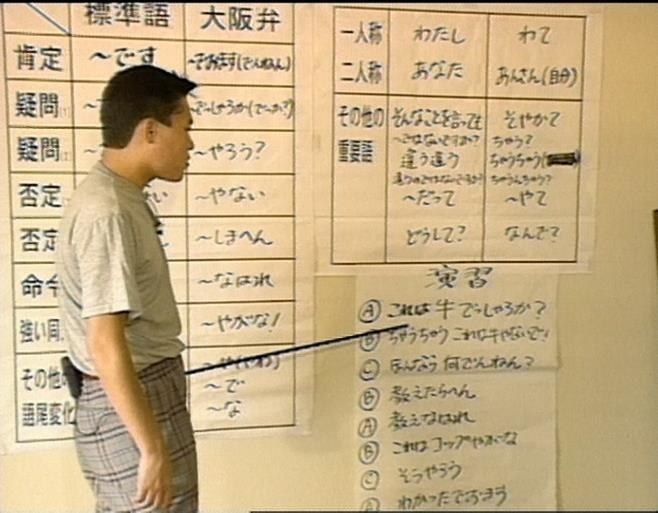 標準語 大阪弁
肯定 ～です ～でおます(でんねん)
疑問 ～でっしゃろか(でっか?)
疑問 ～やろう?
否定 ～やない
否定 ～しまへん
命令 ～なはれ
強い同 ～やがな!
その他の ～や(やわ)
語尾変化 ～で
～な
一人称 わたし わて
二人称 あなた あんさん(自分)
その他の そんなことを言っても そやかて
～ではないですか? ちゃう?
重要語 違う違う ちゃうちゃう
違うのではないですか? ちゃうんちゃう?
～だって ～やて
どうして? なんで?
演習
Ⓐ これは牛でっしゃろか?
Ⓑ ちゃうちゃうこれは牛やないで!
Ⓒ ほんなら何でんねん?
Ⓑ 教えたらへん
Ⓐ 教えなはれ
Ⓑ これはコップやがな
Ⓒ そうやろう
Ⓐ わかったでおます